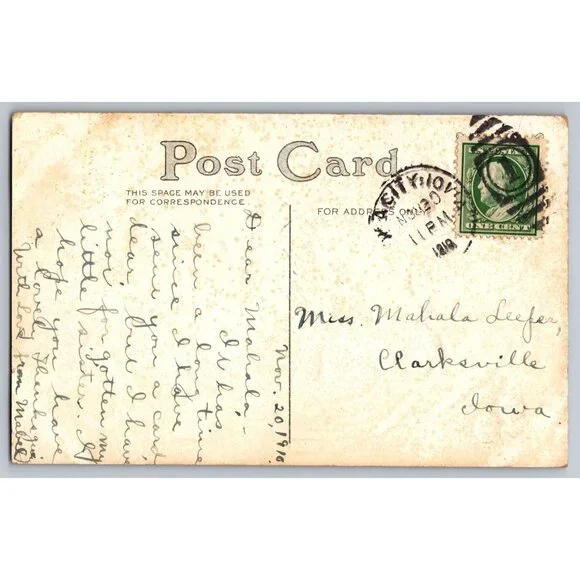 Post Card
THIS SPACE MAY BE USED
FOR CORRESPONDENCE
FOR ADDRESS ONLY
CITY, IOWA
NOV 20
11 PM
1910
ONE CENT
Nov. 20, 1910
Dear Mahala -
It has
been a long time
since I have
sent you a card
dear, but I have
not forgotten my
little sister. I
hope you have
a loved Thanksgiv
With love from Mabel
Miss. Mahala Leefer,
Clarksville
Iowa